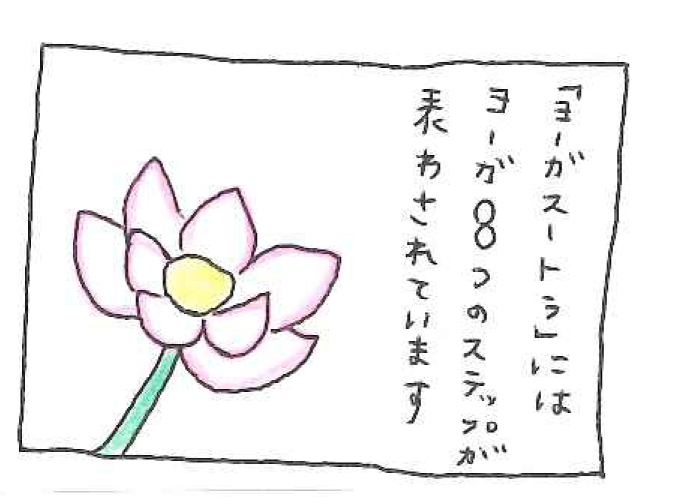 「ヨーガスートラ」には
ヨーガ8つのステップが
表わされています